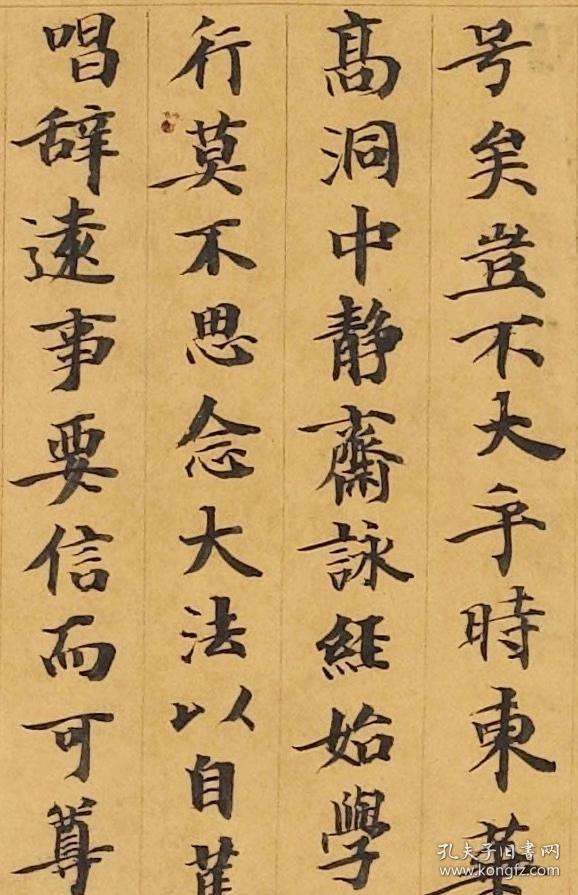 号矣豈不大乎時東
髙洞中静齋詠經始學
行莫不思念大法以自
唱辞遠事要信而可尊
孔夫子旧书网
www.kongfz.com